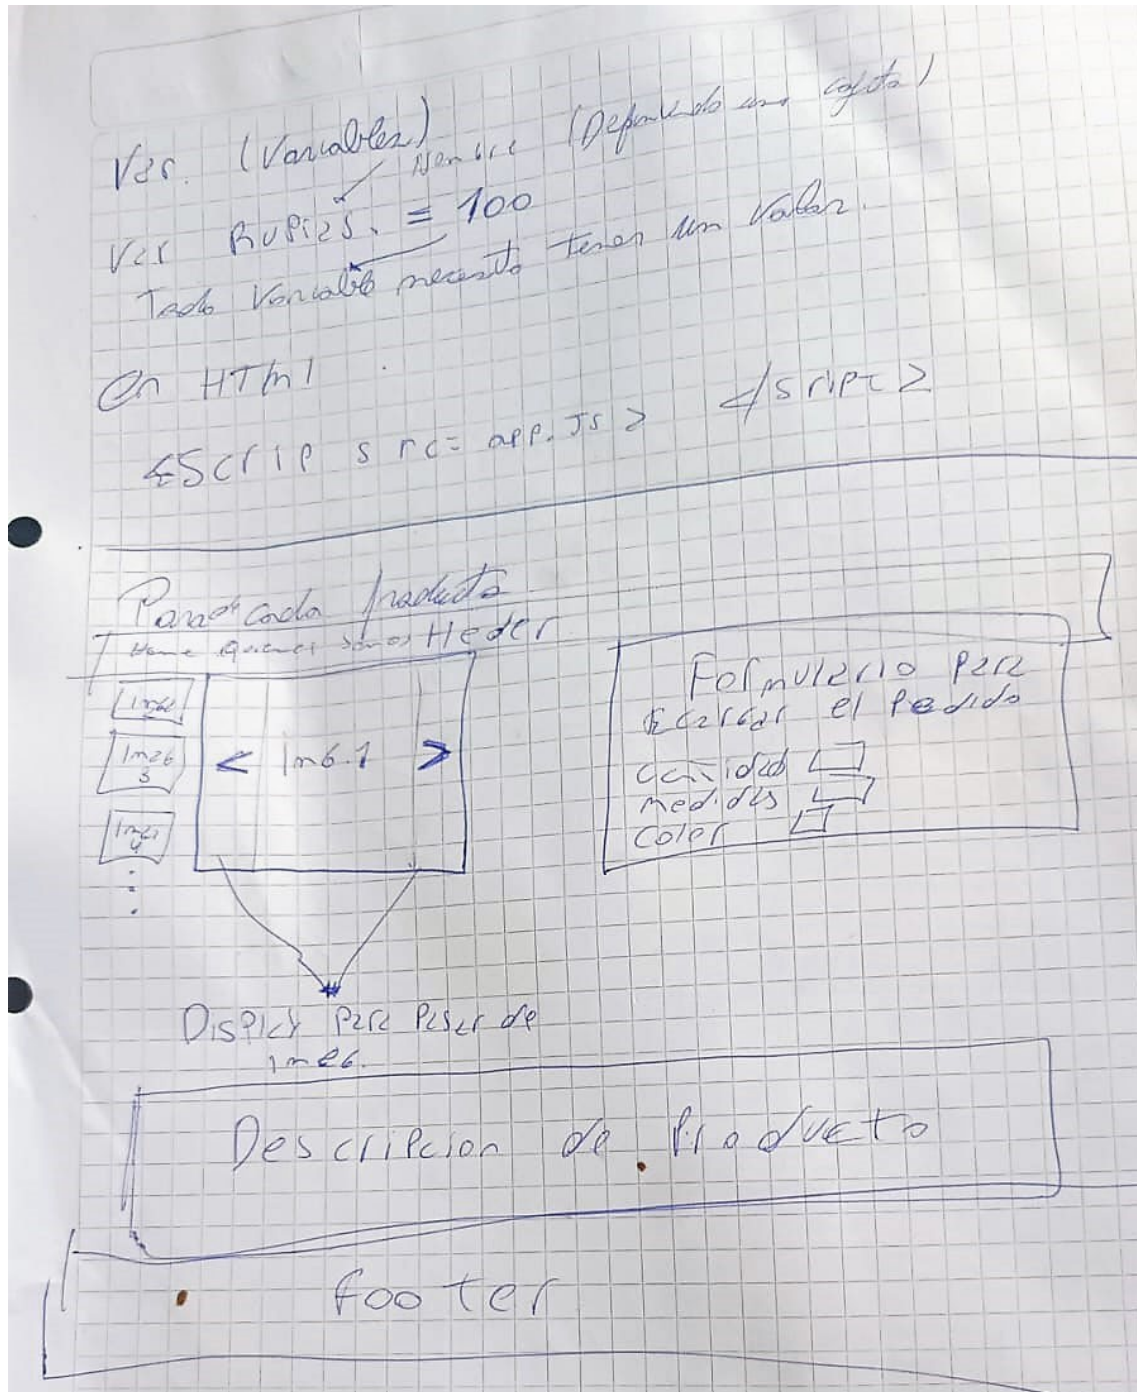 Var. (Variables)
Nombre (Definiendo una cajita)
Var Rupias. = 100
Toda Variable necesita tener un Valor.
En HTml
<Scrip src= app.Js> </script>
Para cada producto
Home Quienes somos Heder
Imag
Imag 3
Imag 4
< Img.1 >
Formulario Para
Ecargar el Pedido
cantidad
medidas
Color
Display Para Pasar de
imag.
Descripcion de Producto
footer